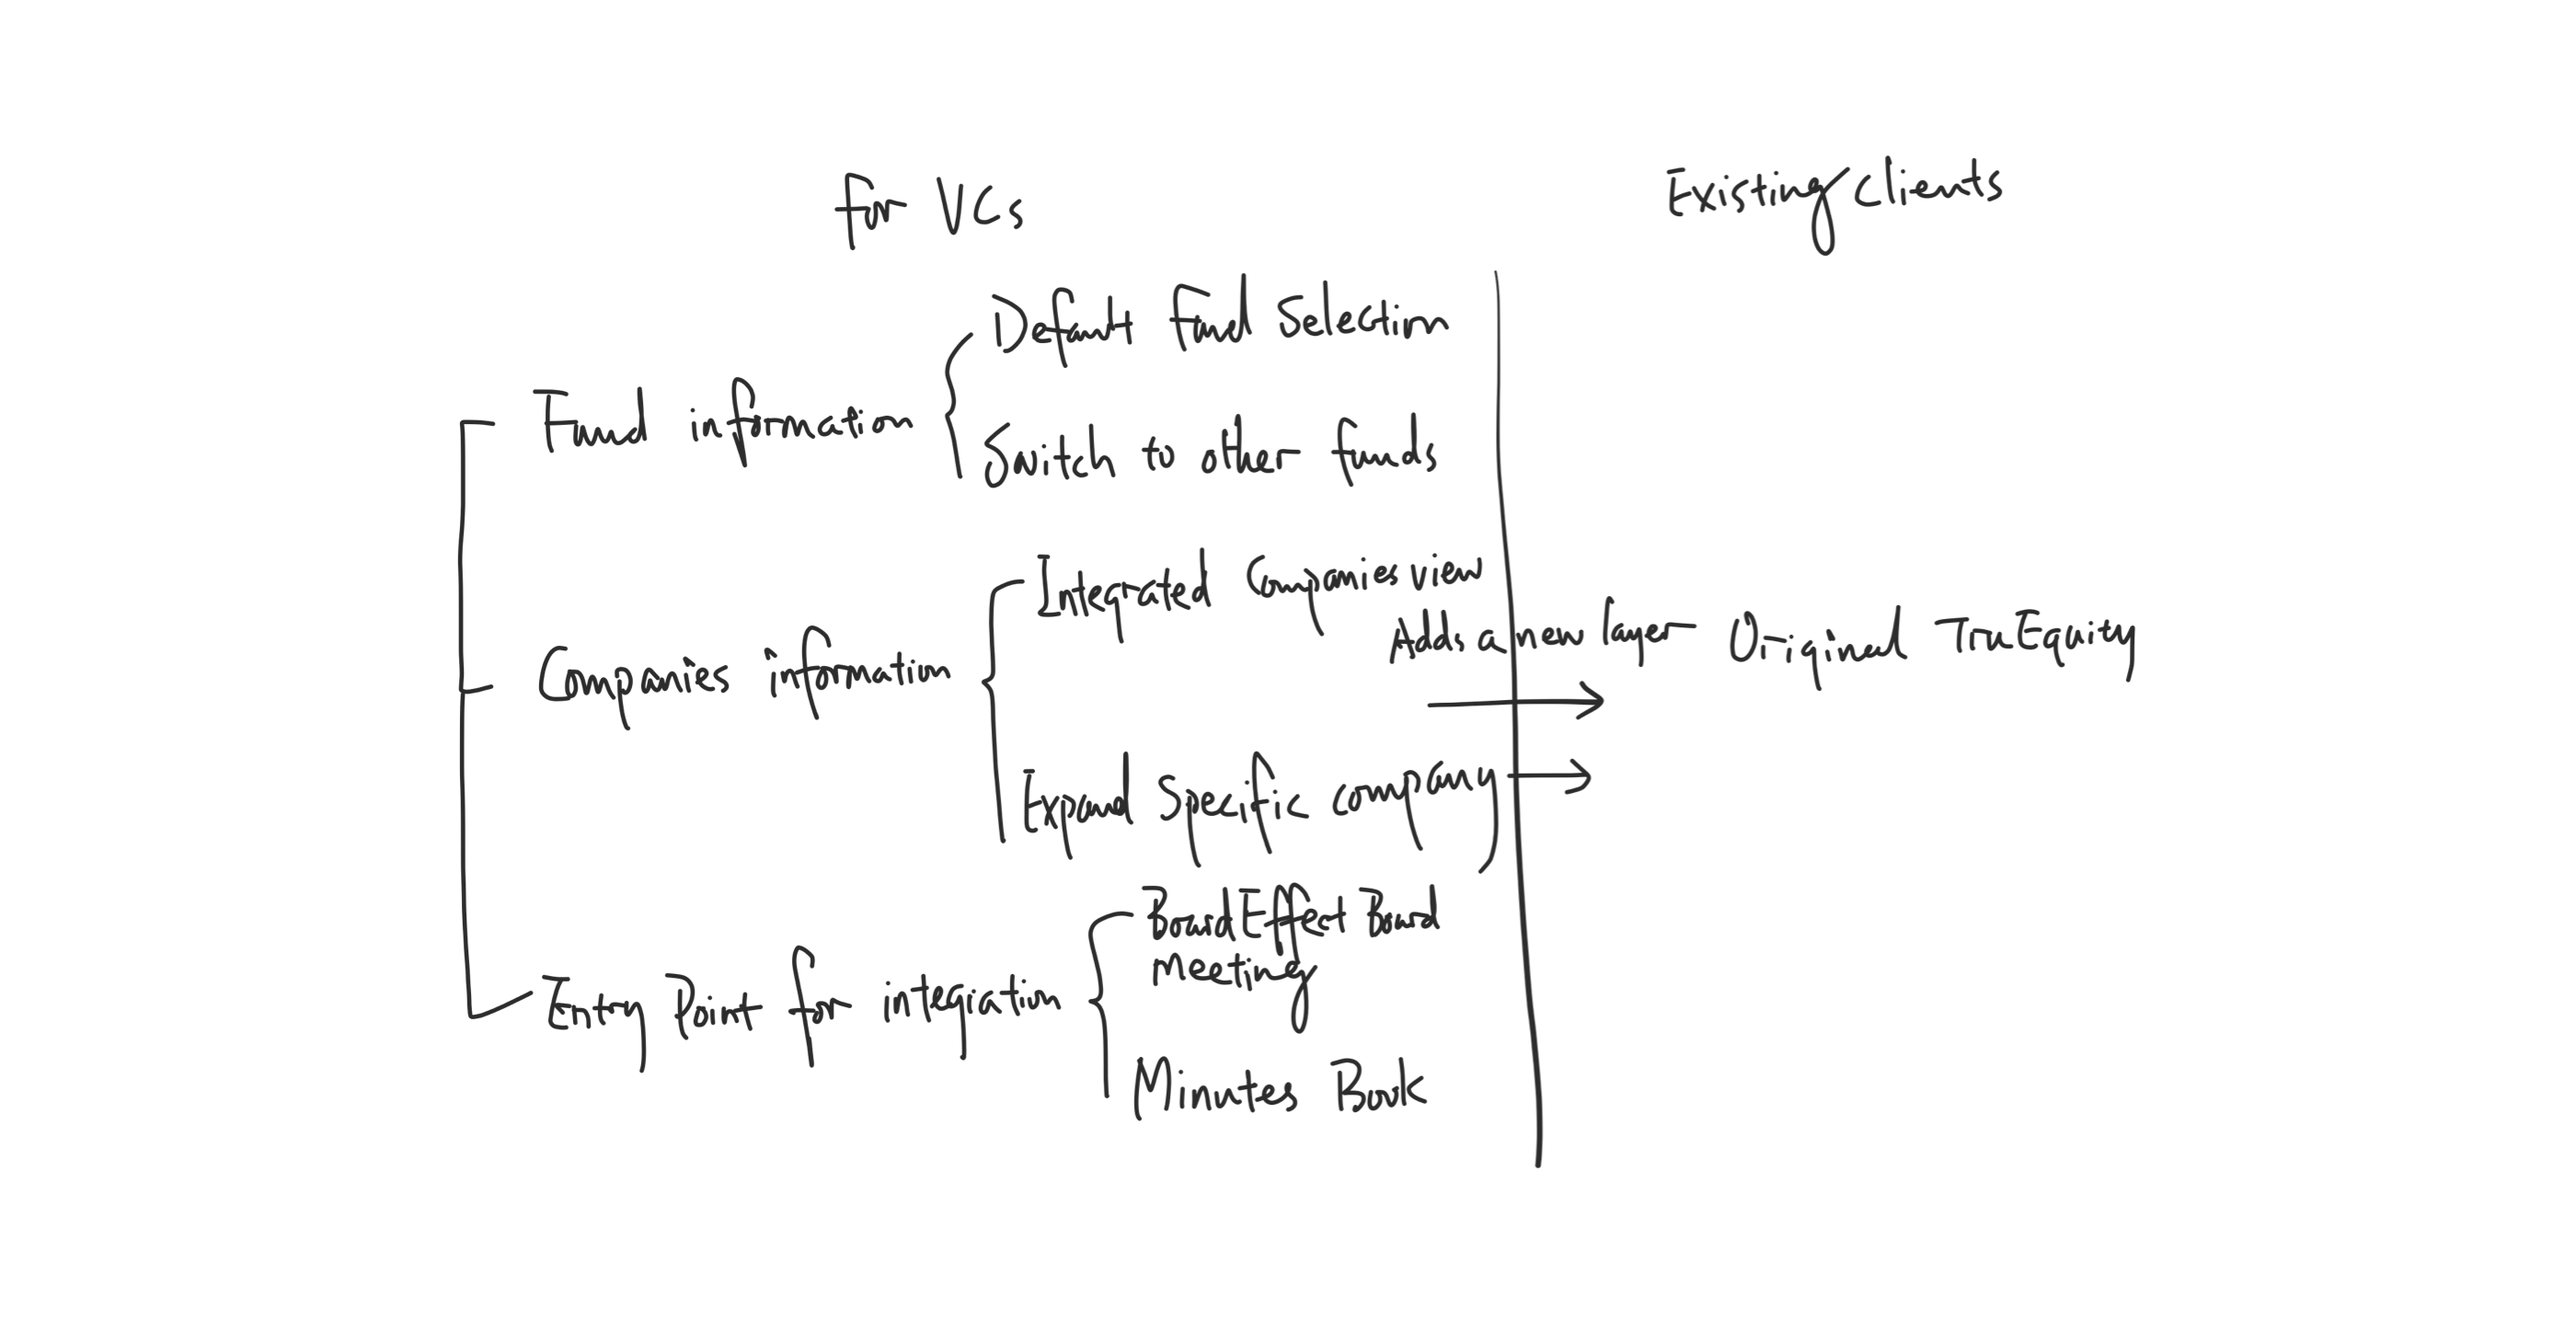 for VCs
Existing clients
Default Fund Selection
Fund information
Switch to other funds
Integrated Companies view
Adds a new layer
Original TruEquity
Companies information
Expand Specific company
BoardEffect Board
meeting
Entry Point for integration
Minutes Book